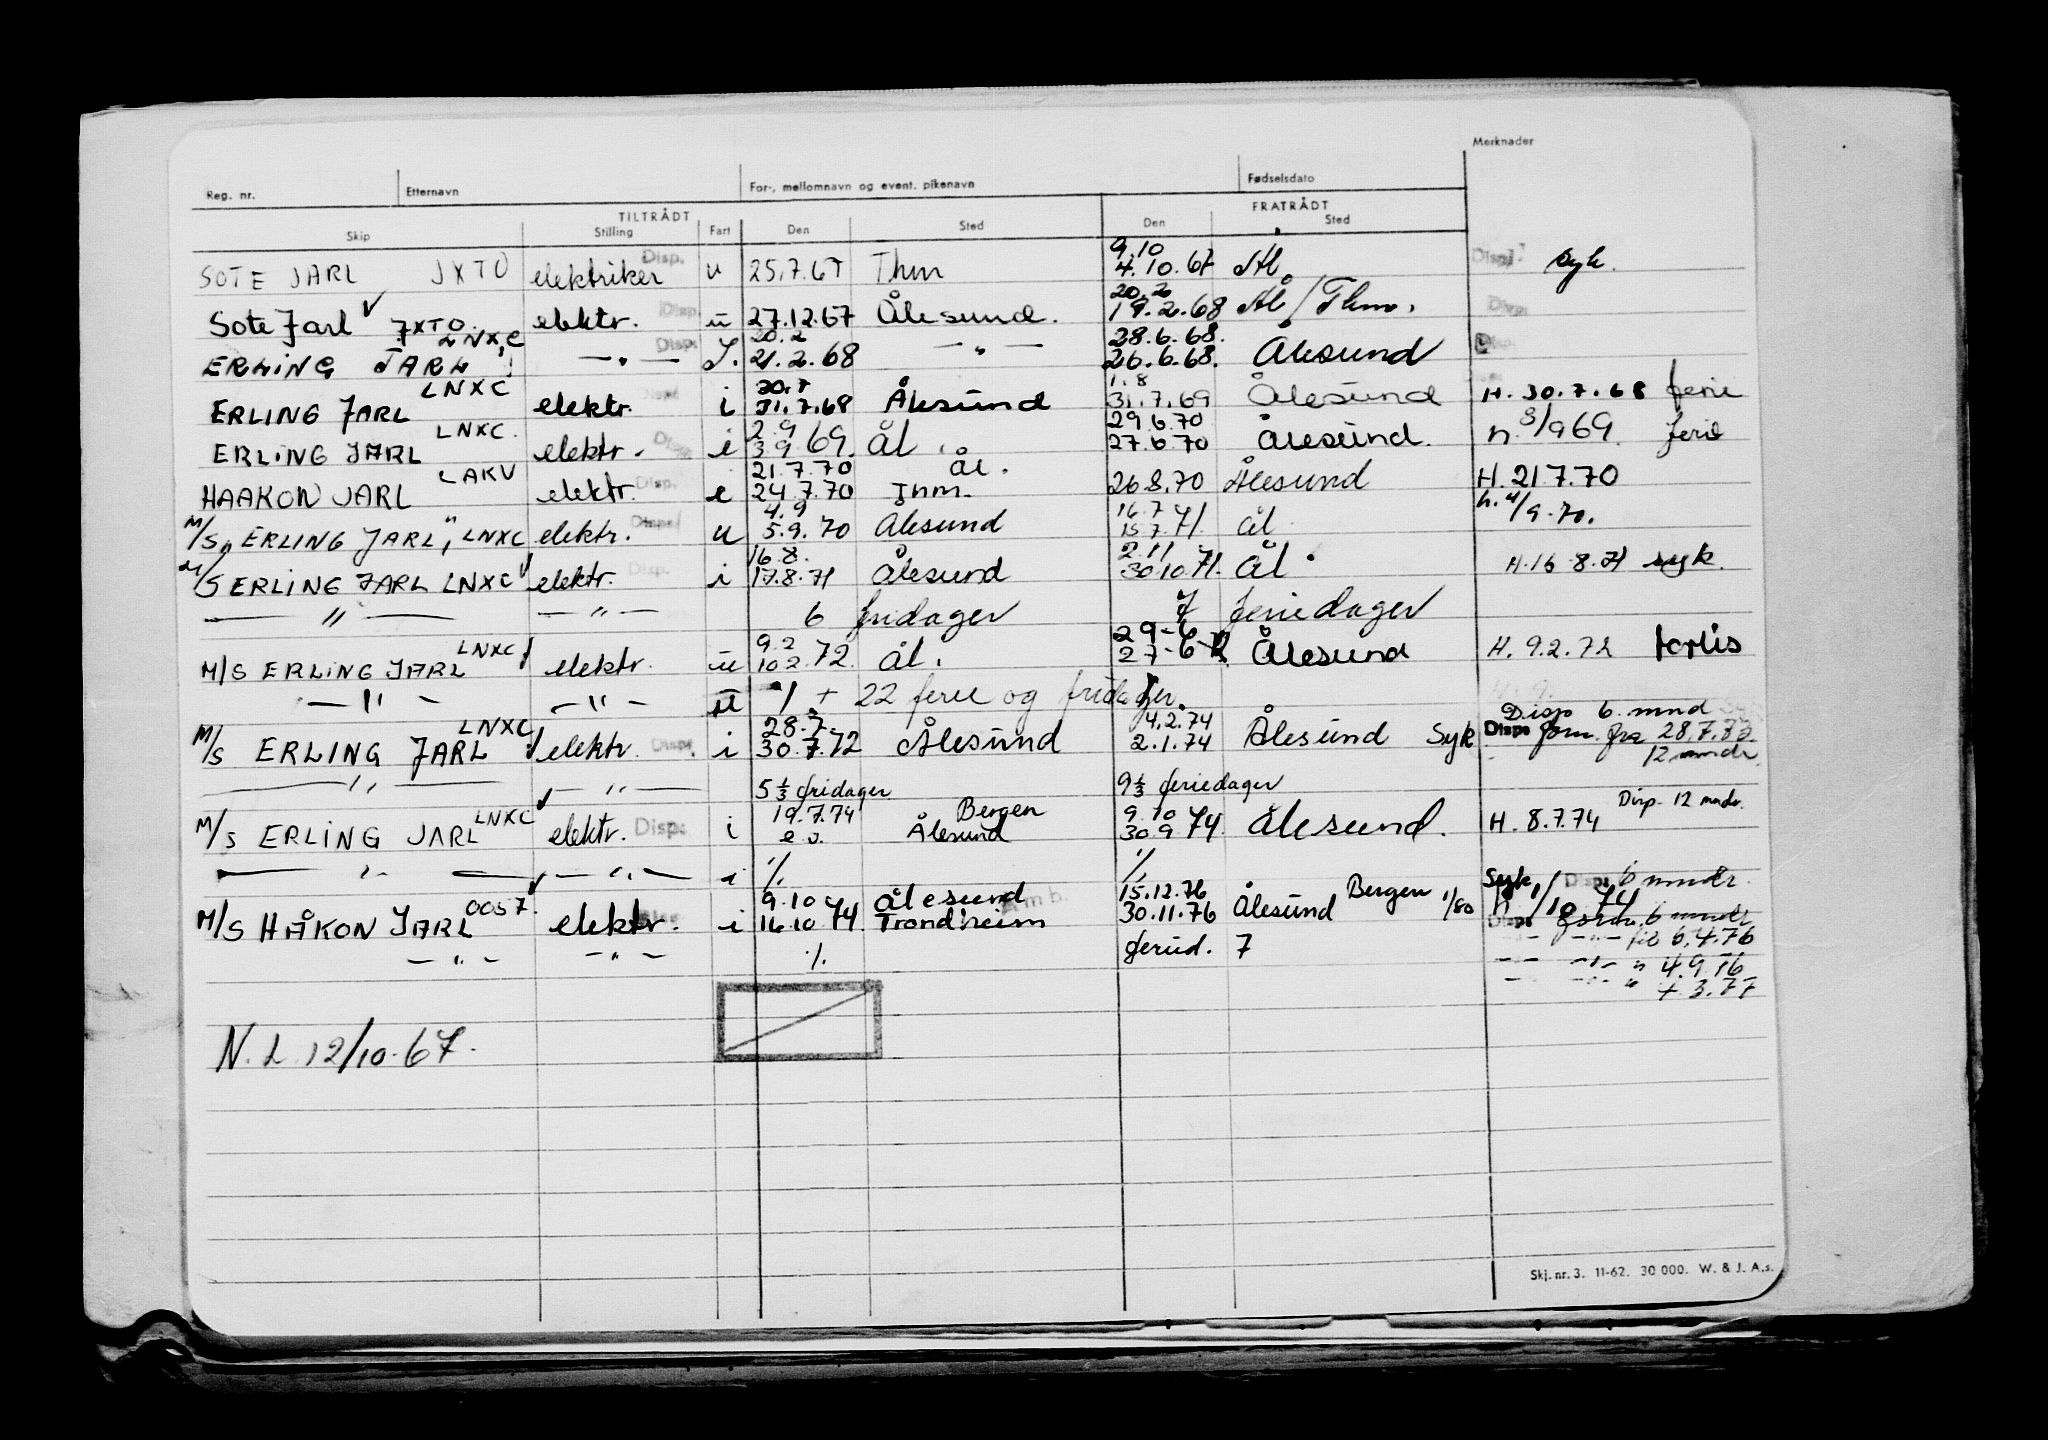 Merknader
Reg. nr. Etternavn For-, mellomnavn og event. pikenavn Fødselsdato
TILTRÅDT FRATRÅDT
Skip Stilling Fart Den Sted Den Sted
9.10
SOTE JARL JXTO elektriker Disp. u 25.7.67 Thm 4.10.67 Ål Disp. syk.
20.2
Sote Jarl JXTO elektr. Disp. u 27.12.67 Ålesund. 19.2.68 Ål/Thm. Disp.
LNXC 20.2 28.6.68.
ERLING JARL —"— Disp. I. 21.2.68 —"— 26.6.68. Ålesund Disp.
LNXC 30.7 1.8
ERLING JARL elektr. Disp. i 31.7.68 Ålesund 31.7.69 Ålesund H. 30.7.68 ferie
LNXC. 2.9 29.6.70
ERLING JARL elektr. Disp. i 3.9.69. Ål. 27.6.70 Ålesund. h. 3/9 69. ferie
LAKV 21.7.70 ål.
HAAKON JARL elektr. Disp. i 24.7.70 Thm. 26.8.70 Ålesund H. 21.7.70
4.9 16.7 h. 4/9.70.
M/S "ERLING JARL", LNXC elektr. Disp. u 5.9.70 Ålesund 15.7.71. ål.
16.8. 2.11
M/S ERLING JARL LNXC elektr. Disp. i 17.8.71 Ålesund 30.10.71. Ål. H. 16.8.71 syk.
—"— —"— 6 fridager 7 feriedager
LNXC 9.2 29-6
M/S ERLING JARL elektr. u 10.2.72 ål. 27-6-72 Ålesund H. 9.2.72 forlis
—"— —"— u ./. + 22 ferie og fridager.
LNXC 28.7 4.2.74 Disp 6. mnd
M/S ERLING JARL elektr. Disp. i 30.7.72 Ålesund 2.1.74 Ålesund Syk Disp. forn. fra 28.7.73
12 mndr.
—"— —"— 5 1/3 fridager 9 1/3 feriedager
LNXC 19.7.74 Bergen 9.10 Disp. 12 mndr.
M/S ERLING JARL elektr. Disp. i e.o. Ålesund 30.9.74. Ålesund. H. 8.7.74
—"— —"— i ./. ./. Syk Disp. 6 mndr.
0057 9.10 Ålesund 15.12.76 Bergen h. 1/10 74
M/S HÅKON JARL elektr. Disp. i 16.10.74. Trondheim 30.11.76 Ålesund 1/80 Disp. forn. 6 mndr
—"— —"— ./. feried. 7 —"— til 6.4.76
—"— " 4.9.76
—"— " 7.3.77
N.L. 12/10.67.
Skj. nr. 3. 11-62. 30 000. W. & J. A.s.